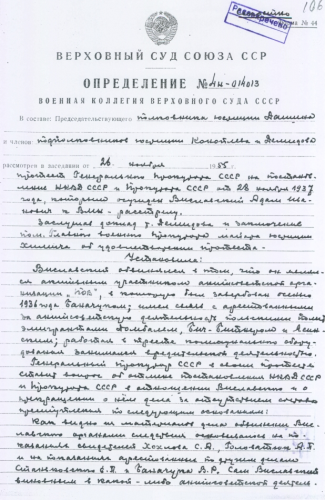 106
Рассекречено
№ 44
ВЕРХОВНЫЙ СУД СОЮЗА ССР
ОПРЕДЕЛЕНИЕ № 4н-014013
ВОЕННАЯ КОЛЛЕГИЯ ВЕРХОВНОГО СУДА СССР
В составе: Председательствующего полковника юстиции
и членов подполковников юстиции Конотлева и Демидова
рассмотрев в заседании от 26 ноября 1955.
протест Генерального Прокурора СССР на постанов-
ление НКВД СССР и Прокурора СССР от 28 ноября 1937
года, которым осужден Виславский Адам Ива-
нович к ВМН - расстрелу.
Заслушав доклад т. Демидова и заключение
пом. Главного военного прокурора майора юстиции
об удовлетворении протеста.
Установила:
Виславский обвинялся в том, что он являл-
ся активным участником антисоветской орга-
низации "ПОВ", в которую был завербован осенью
1936 года имел связь с арестованными
за антисоветскую деятельность польскими полит-
эмигрантами
работая в тресте коммунального обору-
дования занимался вредительской деятельностью.
Генеральный Прокурор СССР в своем протесте
ставит вопрос об отмене постановления НКВД СССР
и Прокурора СССР в отношении Виславского и о
прекращении о нём дела за отсутствием состава
преступления по следующим основаниям:
Как видно из материалов дела обвинение Вис-
лавского органами следствия основывалось на по-
казаниях свидетелей Хохлова С.А., Головатюк А.П.
и на показаниях арестованных по другим делам
В.Р. Сам Виславский
виновным в какой-либо антисоветской деятель-